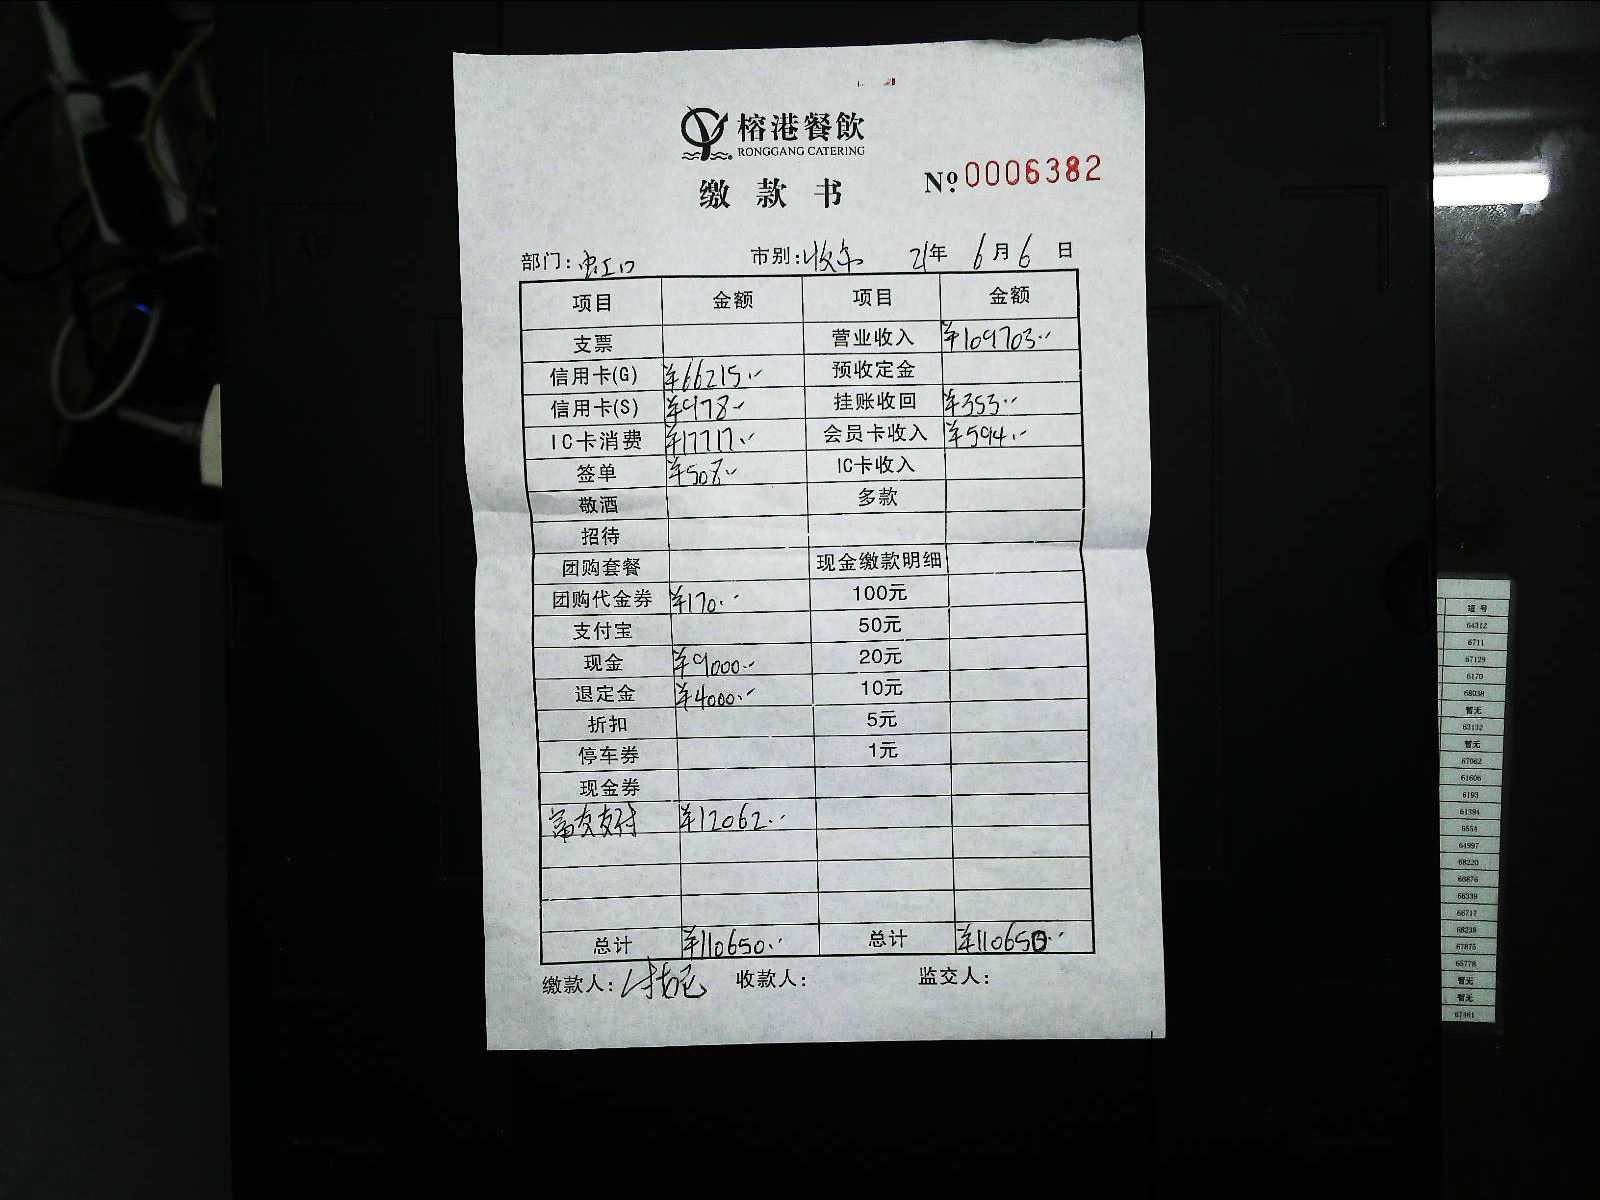 榕港餐飲
RONGGANG CATERING
缴款书
№ 0006382
部门: 虹口 市别: 收市 21年 6月 6日
项目 金额 项目 金额
支票 营业收入 ¥109703.--
信用卡(G) ¥66215.-- 预收定金
信用卡(S) ¥978.-- 挂账收回 ¥353.--
IC卡消费 ¥17717.-- 会员卡收入 ¥594.--
签单 ¥508.-- IC卡收入
敬酒 多款
招待
团购套餐 现金缴款明细
团购代金券 ¥170.-- 100元
支付宝 50元
现金 ¥9000.-- 20元
退定金 ¥4000.-- 10元
折扣 5元
停车券 1元
现金券
富友支付 ¥12062.--
总计 ¥110650.-- 总计 ¥110650.--
缴款人: 收款人: 监交人:
短号
64312
6711
67129
6170
68038
暂无
63132
暂无
67062
61606
6193
61394
6554
64997
68220
66876
66339
66717
68238
67875
65778
暂无
暂无
67461